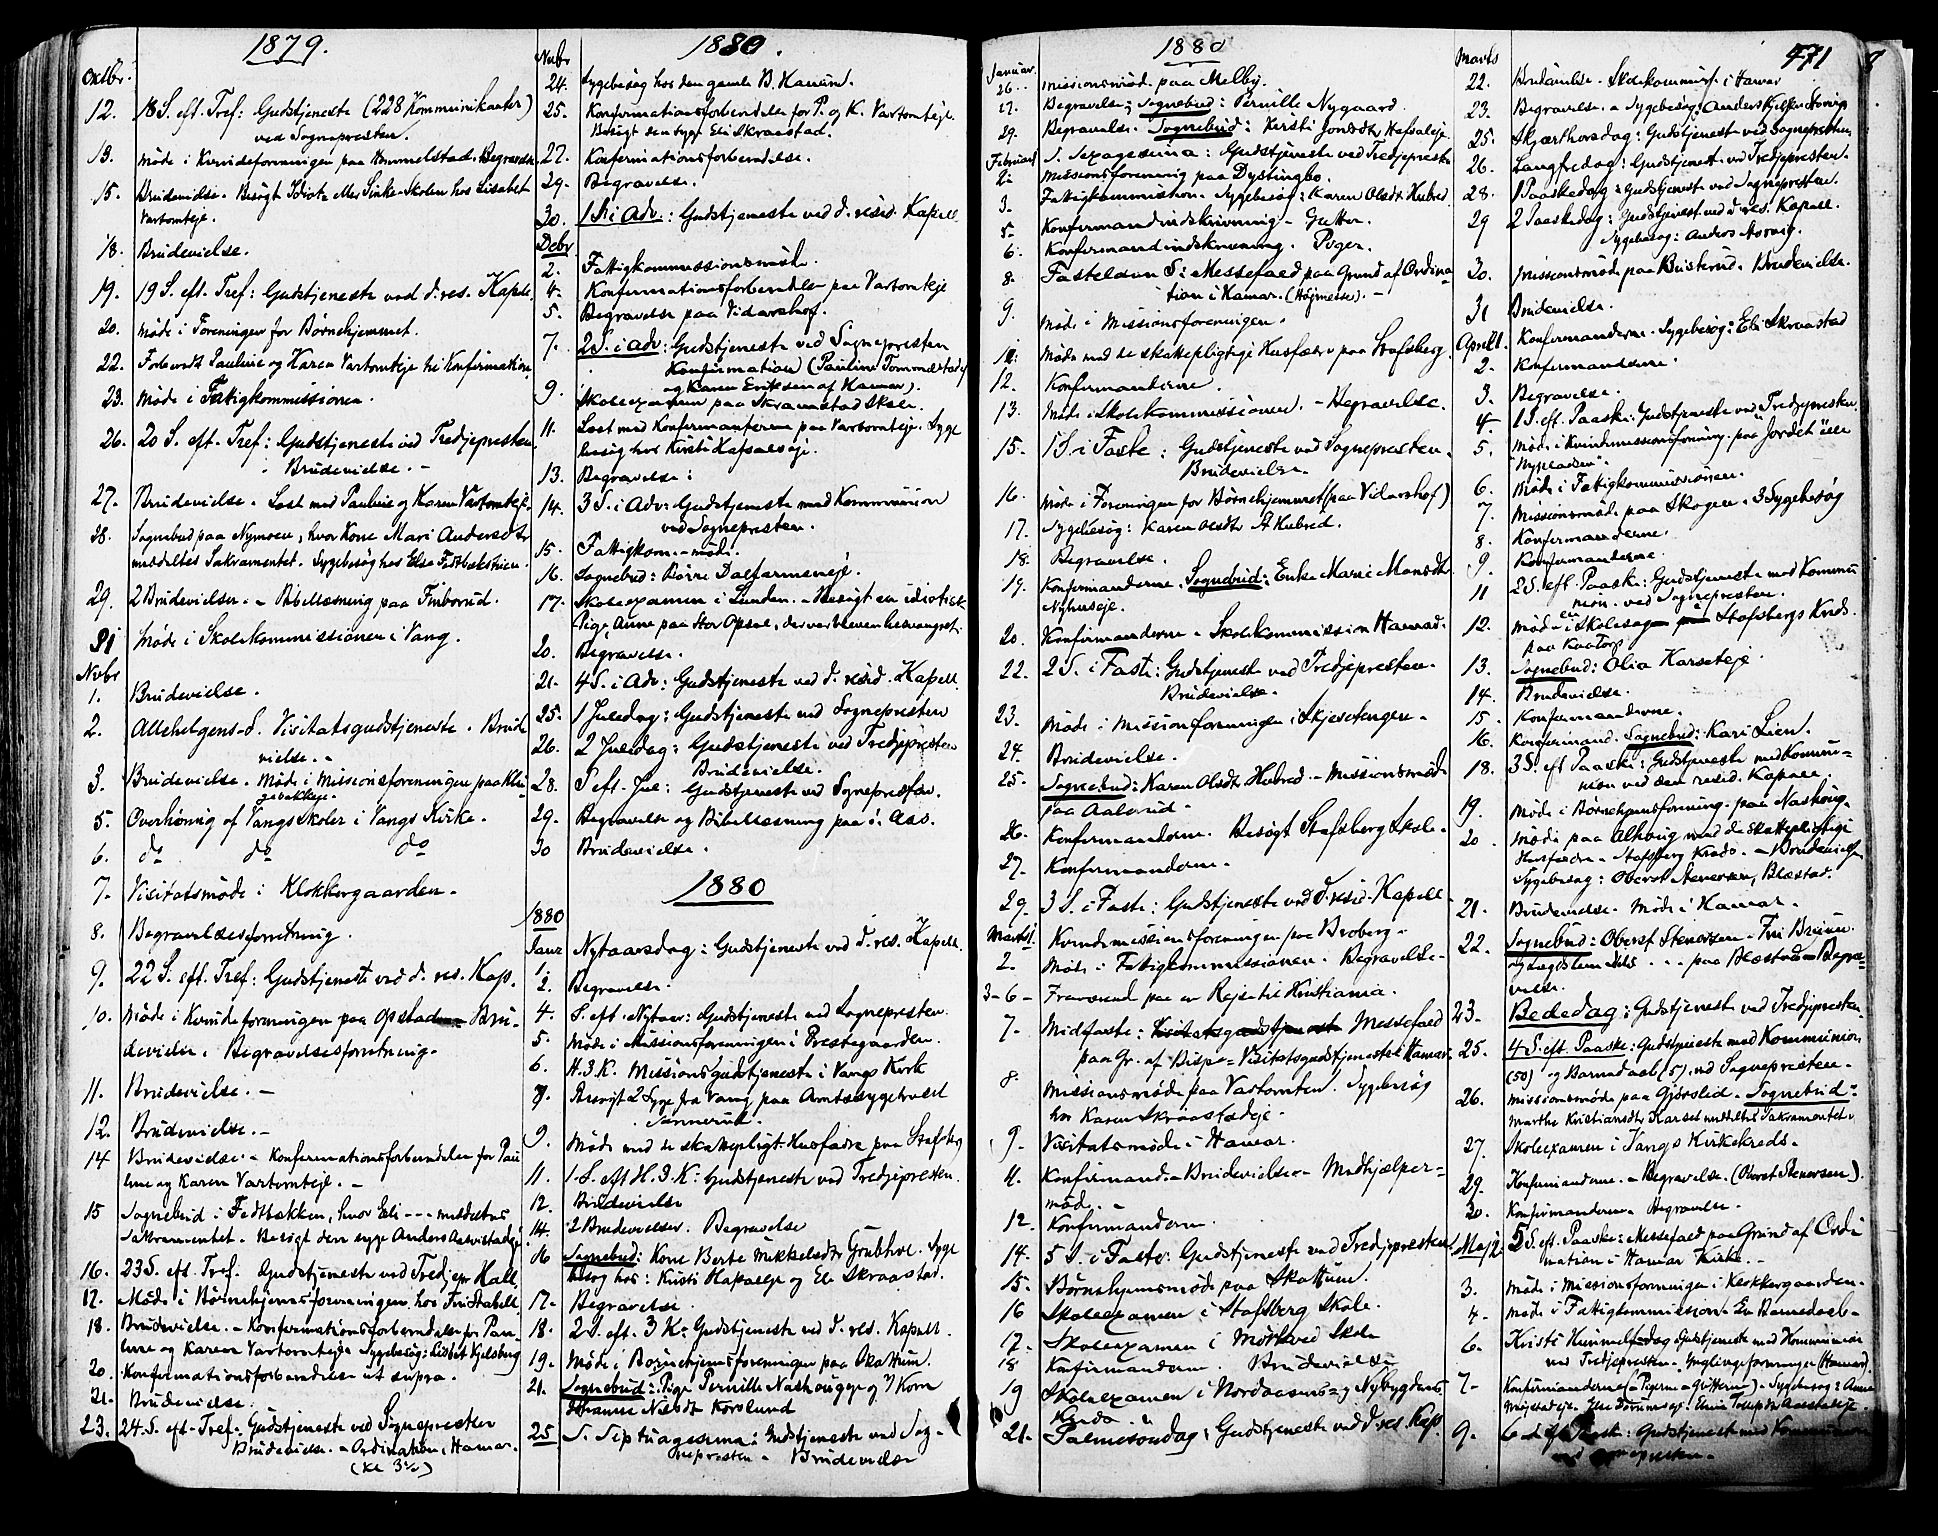 1879.
Oktbr.
12. 18 S. eft. Tref: Gudstjeneste (228 Kommunikanter)
ved Sognepresten.
13. Møde i Kvindeforeningen paa Hommelstad. Begravelse
15. Brudevielse. Besøgt Idiot eller Sinke-Skolen hos Lisabet
Vartomteje.
18. Brudevielse.
19. 19 S. eft. Tref: Gudstjeneste ved d. res. Kapell.
20. Møde i Foreningen for Børnehjemmet.
22. Forberedt Pauline og Karen Vartomteje til Konfirmation
23. Møde i Fattigkommissionen.
26. 20 S. eft. Tref: Gudstjeneste ved Tredjepresten
Brudevielse. -
27. Brudevielse. Læst med Pauline og Karen Vartomteje.
28. Sognebud paa Nymoen, hvor Kone Mari Andersdtr
meddeltes Sakramentet. Sygebesøg hos Elsa Fedtbækstuen.
29. 2 Brudevielser. - Bibellæsning paa Finborud.
31 Møde i Skolekommissionen i Vang.
Novbr
1. Brudevielse.
2. Allehelgens-S. Visitatsgudstjeneste. Brude
vielse. -
3. Brudevielse. Møde i Missionsforeningen paa
5. Overhøring af Vangs Skoler i Vangs Kirke.
6. do do do
7. Visitatsmøde i Klokkergaarden.
8. Begravelsesforretning.
9. 22 S. eft. Tref: Gudstjeneste ved d. res. Kap.
10. Møde i Kvindeforeningen paa Opstad Bru-
devielse. Begravelsesforretning.
11. Brudevielse. -
12. Brudevielse. -
14 Brudevielse. - Konfirmationsforberedelse for Pau
line og Karen Vartomteje. -
15 Sognebud i Fedtbækken, hvor Eli - - - meddeltes
Sakramentet. Besøgt den syge Anders
16. 23 S. eft. Tref. Gudstjeneste ved Tredjepr Hall
17. Møde i Børnehjemsforeningen hos Frk Stabell
18. Brudevielse. - Konfirmationsforberedelse for Pau-
line og Karen Vartomteje. Sygebesøg: Lisbet Kjelsberg
20. Konfirmationsforberedelse ut supra.
21. Brudevielse.
23. 24 S. eft. Tref. Gudstjeneste ved Sognepresten
Brudevielse. - Ordination i Hamar.
(Kl 3½)
1880.
Novbr
24. Sygebesøg hos den gamle B. Hanum.
25. Konfirmationsforberedelse for P. og K. Vartomteje.
Besøgt den syge Eli Skraastad.
27. Konfirmationsforberedelse.
29. Begravelse.
30. 1 S. i Adv.: Gudstjeneste ved d. resid. Kapell.
Debr
2. Fattigkommissionsmøde.
4. Konfirmationsforberedelse paa Vartomteje
5. Begravelse paa Vidarshof.
7. 2 S. i Adv: Gudstjeneste ved Sognepresten
Konfirmation (Pauline Tommestad
og Karen Eriksen af Hamar).
9. Skoleexamen paa Skramstad Skole.
11. Læst med Konfirmanterne paa Vartomteje. Syge
besøg hos Kirsti Hafsalseje.
13. Begravelse.
14. 3 S. i Adv: Gudstjeneste med Kommunion
ved Sognepresten.
15. Fattigkom.-møde.
16. Sognebud: Børre Dalfarmseje.
17. Skoleexamen i Lunden. - Besøgt en idiotisk
Pige, Anne paa Stor Opsal, der var bleven besvangret.
20. Begravelse.
21. 4 S. i Adv: Gudstjeneste ved d. resid. Kapell
25. 1 Juledag: Gudstjeneste ved Sognepresten
26. 2 Juledag: Gudstjeneste ved Tredjepresten
Brudevielse.
28. S. eft. Jul: Gudstjeneste ved Sognepresten.
29. Begravelse og Bibellæsning paa Aas.
30 Brudevielse.
1880
1880
Januar
1. Nytaarsdag: Gudstjeneste ved d. res. Kapell.
2. Begravelse.
4. S. eft. Nytaar: Gudstjeneste ved Sognepresten
5. Møde i Missionsforeningen i Prestegaarden.
6. H. 3 K. Missionsgudstjeneste i Vangs Kirk
7. Besøgt 2 Syge fra Vang paa Amtssygehuset
Sannerud.
9. Møde med de skattepligt. Husfædre paa Stafsberg
11. 1 S. eft H. 3 K: Gudstjeneste ved Tredjepresten.
12. Brudevielse
14. 2 Brudevielser. Begravelse
16 Sognebud: Kone Berte Mikkelsdtr Grubhol. Syge
besøg hos: Kirsti Hafsalseje og Eli Skraastad.
17. Begravelse.
18. 2 S. eft. 3 K: Gudstjeneste ved d. res. Kapell.
19. Møde i Børnehjemsforeningen paa Skattum.
21. Sognebud: Pige Pernille Nashougeje og Kone
Johanne Nilsdtr Korslund
25 S. Septuagesima: Gudstjeneste ved Sog-
nepresten. Brudevielse
1880
Januar
26. Missionsmøde paa Melby.
27. Begravelse; Sognebud: Pernille Nygaard.
29. Begravelse. Sognebud: Kirsti Jonsdtr Hafsaleje.
Februar
1. S. Sexagesima: Gudstjeneste ved Tredjeprest
2. Missionsforening paa Dystingbo.
3. Fattigkommission. Sygebesøg: Karen Olsdtr Hubred
5. Konfirmandindskrivning - Gutter.
6. Konfirmandindskrivning. Piger.
8. Fastelavn S: Messefald paa Grund af Ordina
tion i Hamar. (Højmesse). -
9. Møde i Missionsforeningen.
11. Møde med de skattepligtige Husfædre paa Stafsberg
12. Konfirmanderne.
13. Møde i Skolekommissionen. - Begravelse.
15. 1 S. i Faste: Gudstjeneste ved Sognepresten.
Brudevielse.
16. Møde i Foreningen for Børnehjemmet (paa Vidarshof)
17. Sygebesøg: Karen Olsdtr St. Hubred.
18. Begravelse.
19. Konfirmanderne. Sognebud: Enke Marie Monsdtr
Nyhuseje.
20. Konfirmanderne. Skolekommission Hamar.
22. 2 S. i Faste: Gudstjeneste ved Tredjepresten.
Brudevielse.
23. Møde i Missionsforeningen i Skjesetengen.
24. Brudevielse.
25. Sognebud: Karen Olsdtr Hubred - Missionsmøde
paa Aalerud.
26. Konfirmanderne. Besøgt Stafsberg Skole.
27. Konfirmanderne.
29. 3 S. i Faste: Gudstjeneste ved d. resid. Kapell
Marts 1. Kvindemissionsforeningen paa Broberg.
2. Møde i Fattigkommissionen. Begravelse.
3-6 - Fraværend paa en Rejse til Kristiania.
7. Midfaste: Visitatsgudstjeneste Messefald
paa Gr. af Bispe-Visitatsgudstjeneste i Hamar.
8. Missionsmøde paa Vartomten. Sygebesøg
hos Karen Skraastadeje.
9. Visitatsmøde i Hamar.
11. Konfirmand. - Brudevielse - Medhjælper-
møde. -
12. Konfirmanderne.
14. 5 S. i Faste: Gudstjeneste ved Tredjepresten.
15. Børnehjemsmøde paa Skattum.
16 Skoleexamen i Stafsberg Skole.
17. Skoleexamen i Mørkved Skole
18 Konfirmanderne. Brudevielse
19 Skoleexamen i Nordaasens og Nybygdens
Kreds.
21. Palmesøndag: Gudstjeneste ved d. res. Kap.
471
Marts
22. Brudevielse. Skolekommiss. i Hamar
23. Begravelse. - Sygebesøg: Anders Kjelsen Storvig
25. Skjærthorsdag: Gudstjeneste ved Sognepresten
26. Langfredag: Gudstjeneste ved Tredjepresten.
28. 1 Paaskedag: Gudstjeneste ved Sognepresten.
29 2 Paaskedag: Gudstjenest ved d. res. Kapell.
Sygebesøg: Anders Storvig.
30. Missionsmøde paa Bristerud. Brudevielse.
31 Brudevielse.
April 1. Konfirmanderne. Sygebesøg: Eli Skraastad
2. Konfirmanderne.
3. Begravelse.
4. 1 S. eft. Paaske: Gudstjeneste ved Tredjepresten.
5. Møde i Kvindemissionsforening paa Jordet eller
"Nypladsen".
6. Møde i Fattigkommissionen.
7. Missionsmøde paa Skogen. 3 Sygebesøg
8. Konfirmanderne.
9. Konfirmanderne.
11 2 S. eft. Paaske: Gudstjeneste med Kommu
nion ved Sognepresten.
12. Møde i Skolesag Stafsbergs Kreds.
paa Kaatorp
13. Sognebud: Olia Karseteje.
14. Brudevielse.
15. Konfirmanderne.
16. Konfirmand. Sognebud: Kari Lien.
18. 3 S. eft Paaske: Gudstjeneste med Kommu-
nion ved den resid. Kapell.
19. Møde i Børnehjemsforening paa Nashoug.
20. Møde paa Alhoug med de skattepligtige
Husfædre - Stafsberg Kreds. - Brudevielse
Sygebesøg: Oberst Stenersen, Blæstad.
21. Brudevielse. Møde i Hamar.
22. Sognebud: Oberst Stenersen - Fru Bruun
paa Blæstad - Begra-
velse.
23. Bededag: Gudstjeneste ved Tredjepresten.
25. 4 S. eft. Paaske: Gudstjeneste med Kommunion
(50) og Barnedaab (5), ved Sognepresten.
26. Missionsmøde paa Gjørslid. Sognebud:
Marthe Kristiansdtr Karset meddeltes Sakramentet.
27. Skoleexamen i Vangs Kirkekreds.
29. Konfirmanderne. - Begravelse. (Oberst Stenersen).
30. Konfirmanderne. Begravelse.
Maj 2. 5 S. eft. Paaske: Messefald paa Grund af Ordi
nation i Hamar Kirke. -
3. Møde i Missionsforeningen i Klokkergaarden.
4. Møde i Fattigkommission. En Barnedaab.
6. Kristi Himmelf-dag Gudstjeneste med Kommunion
ved Tredjepresten. Ynglingeforeningen (Hamar).
7. Konfirmanderne (Pigerne & Gutterne). Sygebesøg: Anne
9. 6 S. eft. Paaske: Gudstjeneste med Kommunion
ved Sognepresten.